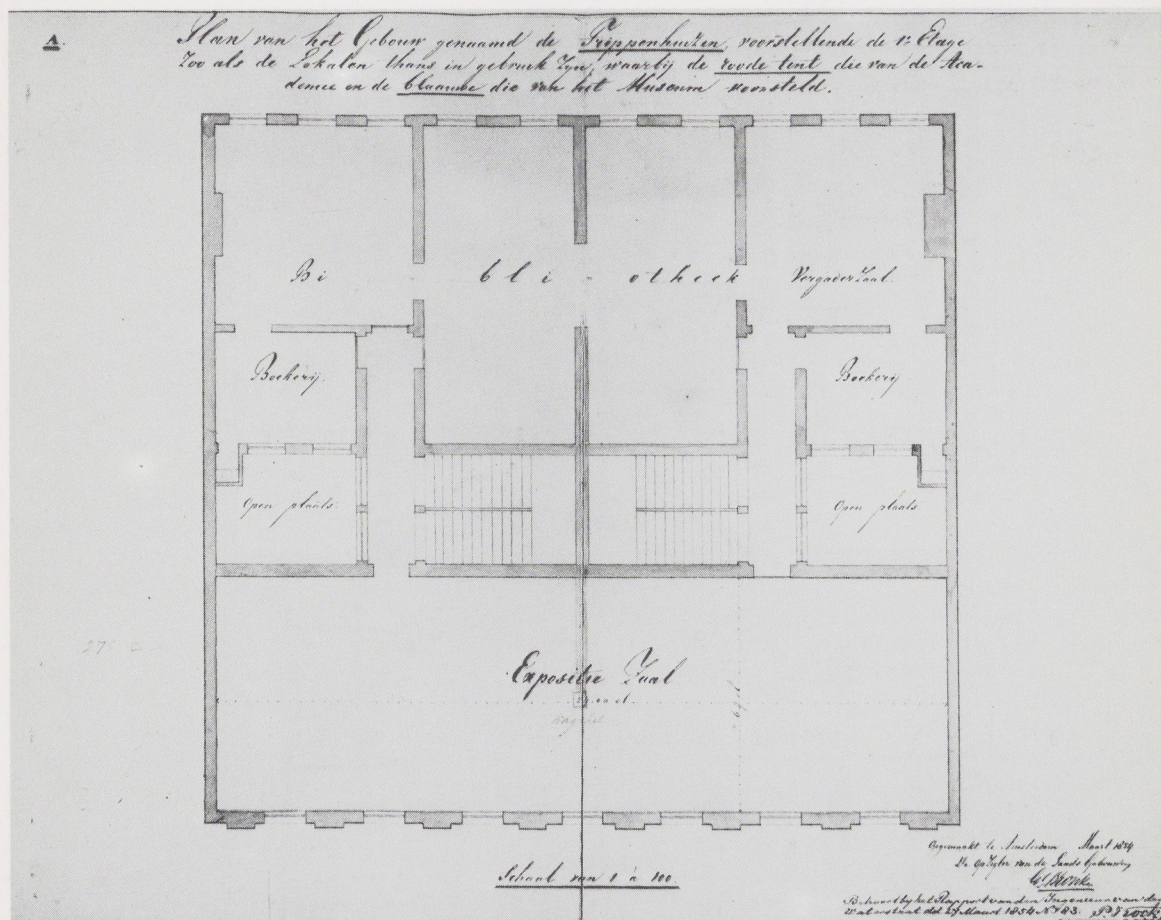 A.
Plan van het Gebouw genaamd de Trippenhuizen, voorstellende de 1e Etage
Zoo als de Lokalen thans in gebruik zyn, waarbij de roode tent die van de Aca-
demie en de blaauwe die van het Museum voorsteld.
Bi - bli - otheek Vergaderzaal.
Boekerij. Boekerij
Open plaats. Open plaats
Expositie Zaal
Schaal van 1 à 100.
Opgemaakt te Amsterdam Maart 1854
De Opzigter van de Lands Gebouwen
Behoort bij het Rapport van den Ingenieur van den
Waterstaat dd 17 Maart 1854 No 83.